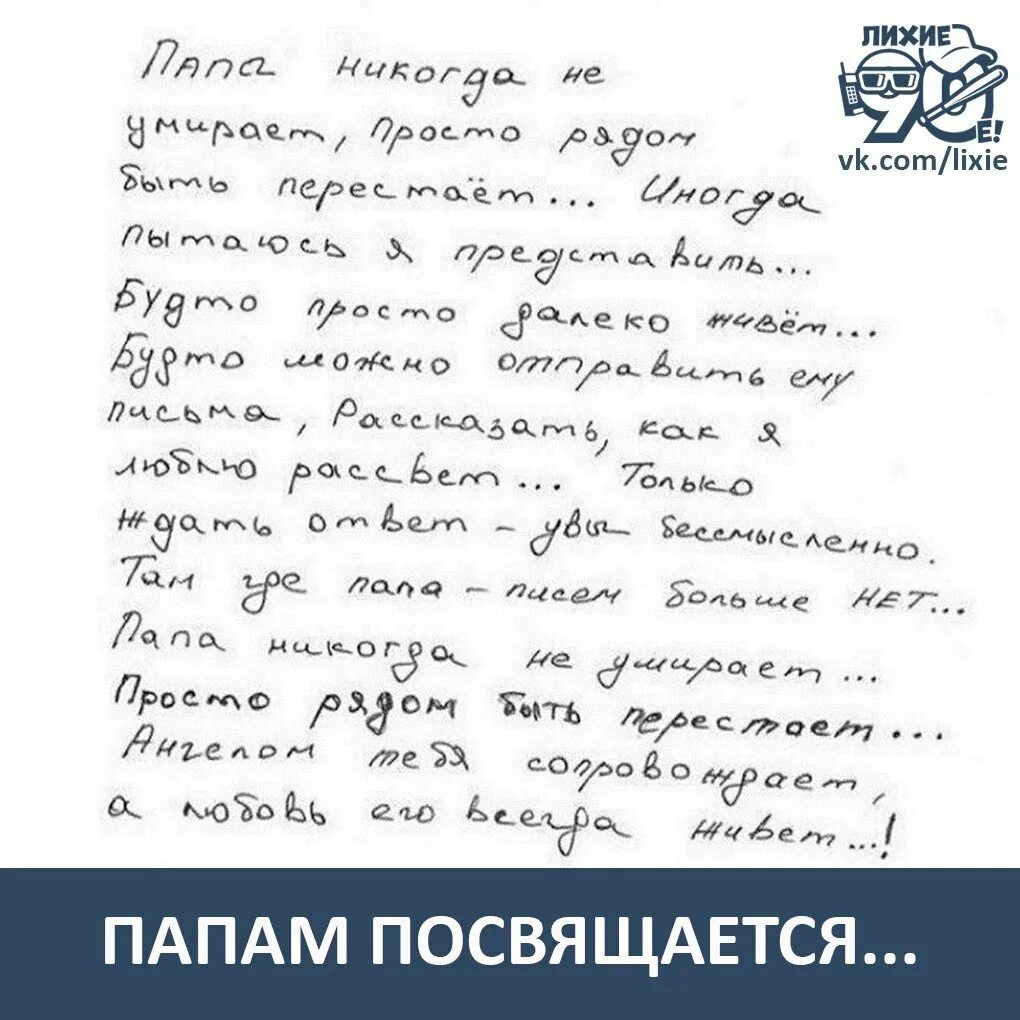 ЛИХИЕ
90Е!
vk.com/lixie
Папа никогда не
умирает, просто рядом
быть перестаёт... Иногда
пытаюсь я представить...
Будто просто далеко живёт...
Будто можно отправить ему
письма, Рассказать, как я
люблю рассвет... Только
ждать ответ - увы бессмысленно.
Там где папа - писем больше НЕТ...
Папа никогда не умирает...
Просто рядом быть перестает...
Ангелом тебя сопровождает,
а любовь его всегда живет...!
ПАПАМ ПОСВЯЩАЕТСЯ...